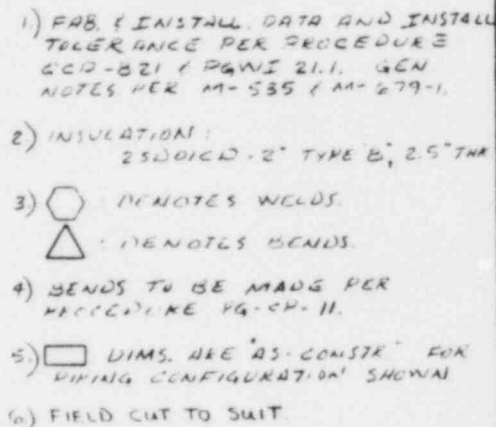 1.) FAB. & INSTALL. DATA AND INSTALL
TOLERANCE PER PROCEDURE
GCP-821 & PGWI 21.1. GEN
NOTES PER M-535 & M-679-1.
2) INSULATION:
-2" TYPE B, 2.5" THK
3) DENOTES WELDS.
: DENOTES BENDS.
4) BENDS TO BE MADE PER
PROCEDURE PG-CP-11.
5.) DIMS. ARE "AS-CONSTR" FOR
PIPING CONFIGURATION SHOWN
6.) FIELD CUT TO SUIT.